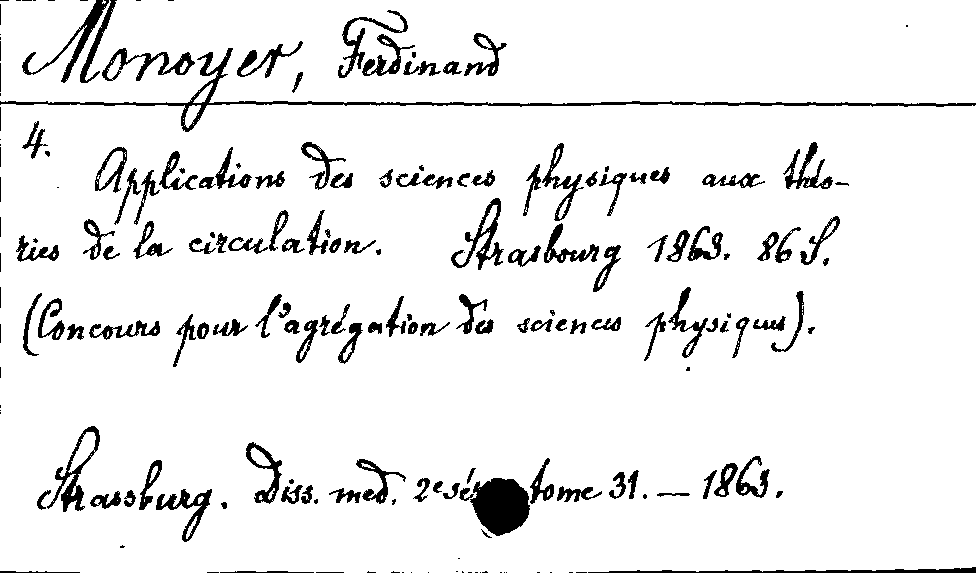 Monoyer, Ferdinand
4.
Applications des sciences physiques aux théo-
ries de la circulation. Strasbourg 1863. 86 S.
(Concours pour l'agrégation des sciences physiques).
Strassburg. Diss. med. 2e tome 31. — 1863.